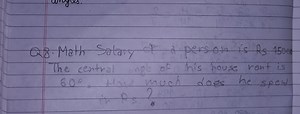 angles.
Q8. Math Salary of a person is Rs 15000
The central angle of his house rent is
60°. How much does he spend
in Rs ?